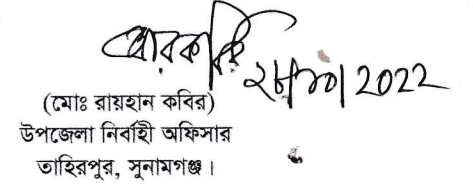 ২৮/১০/2022
(মোঃ রায়হান কবির)
উপজেলা নির্বাহী অফিসার
তাহিরপুর, সুনামগঞ্জ।